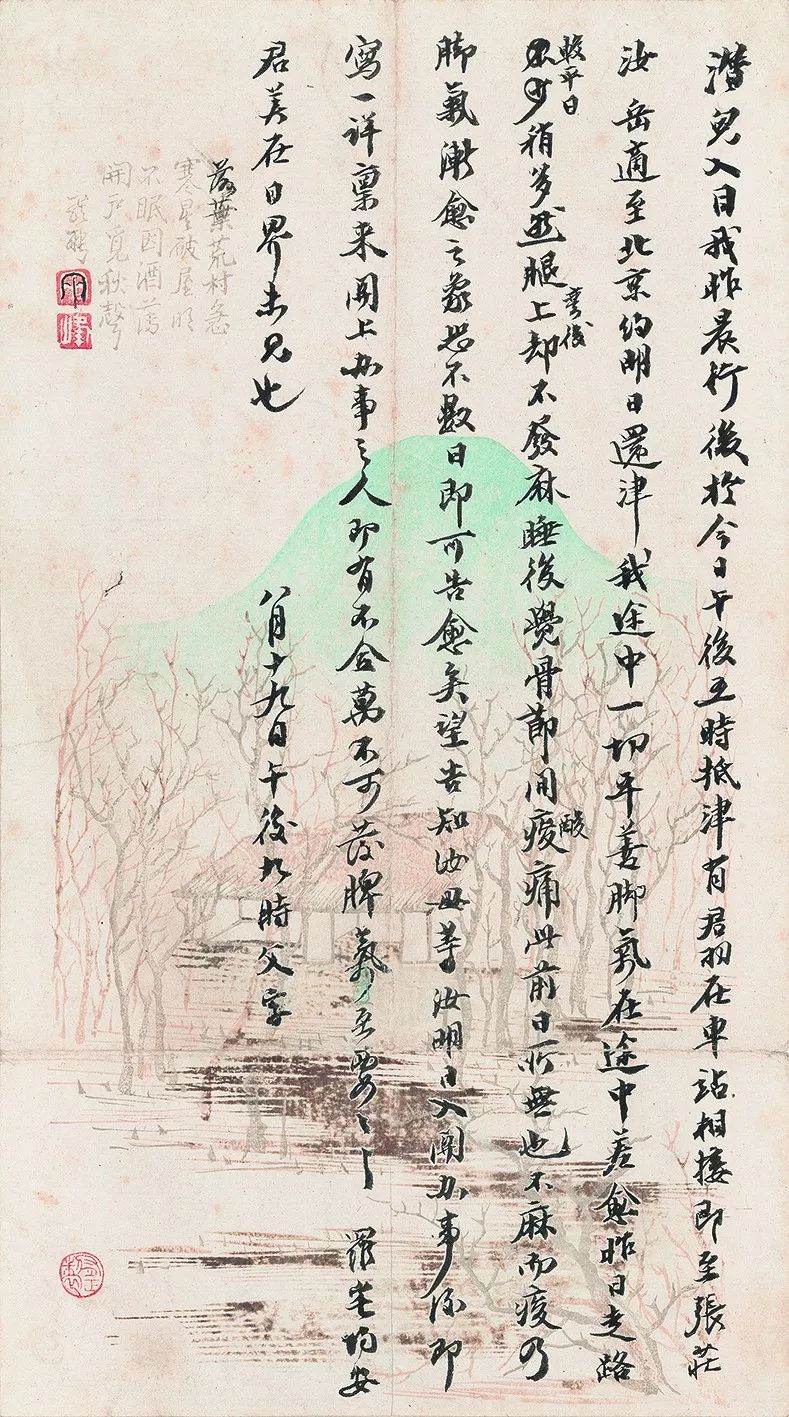 潛兒入目我昨晨行後於今日午後五時抵津有君羽在車站相接即至張莊
汝岳適至北京約明日還津我途中一切平善脚氣在途中差愈昨日走路
較平日
稍多然腿上
彎後
却不發麻睡後覺骨節間痠
酸
痛此前日所無也不麻而痠乃
脚氣漸愈之象恐不數日即可告愈矣望告知汝母等汝明日入關办事後即
寫一詳稟來關上办事之人即有不合萬不可發脾氣至要至要 羅宅均安
君美在日界未見也 八月十九日午後九時父字
落葉荒村急
寒星破屋明
不眠因酒薄
開戶覓秋聲